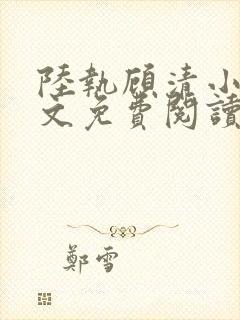 陸執顧清小
文免費閱讀
鄭雪